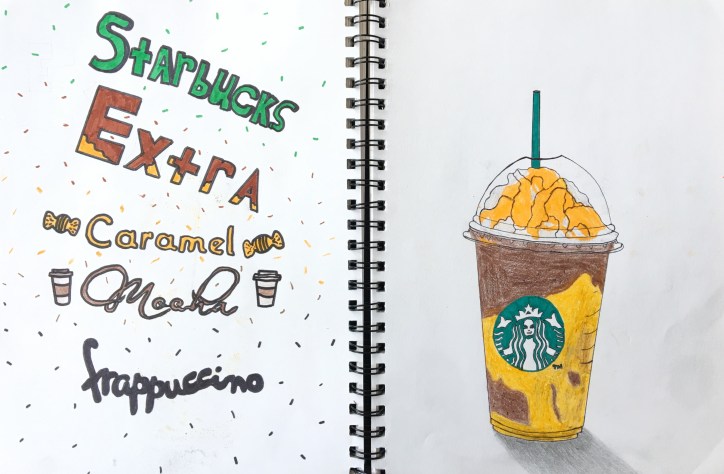 StArbucks
ExtrA
Caramel
Mocha
frappuccino
TM